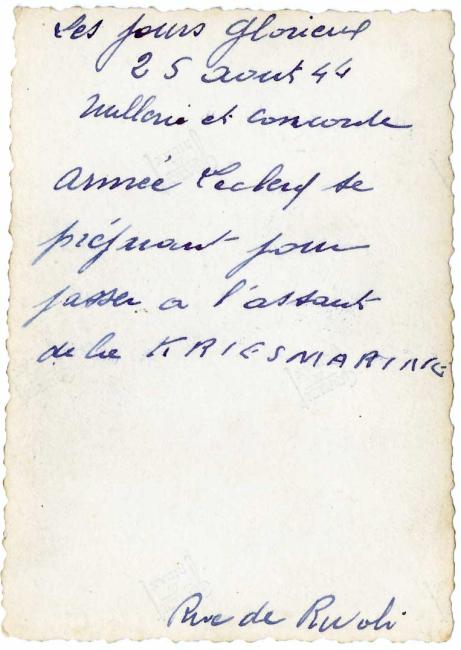 Les jours glorieux
25 aout 44
et Concorde
Armée Leclerc se
préparant pour
passer a l'assaut
de la KRIESMARINE
Rue de Rivoli